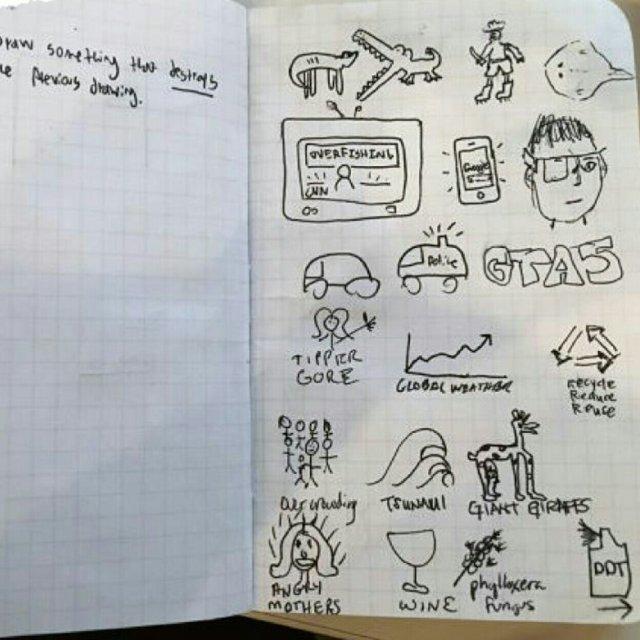 Draw something that destroys
the previous drawing.
OVERFISHING
CNN
Google
Police
GTA5
TIPPER
GORE
GLOBAL WEATHER
Recycle
Reduce
Reuse
Overcrowding
TSUNAMI
GIANT GIRAFFES
ANGRY
MOTHERS
WINE
phylloxera
fungus
DDT